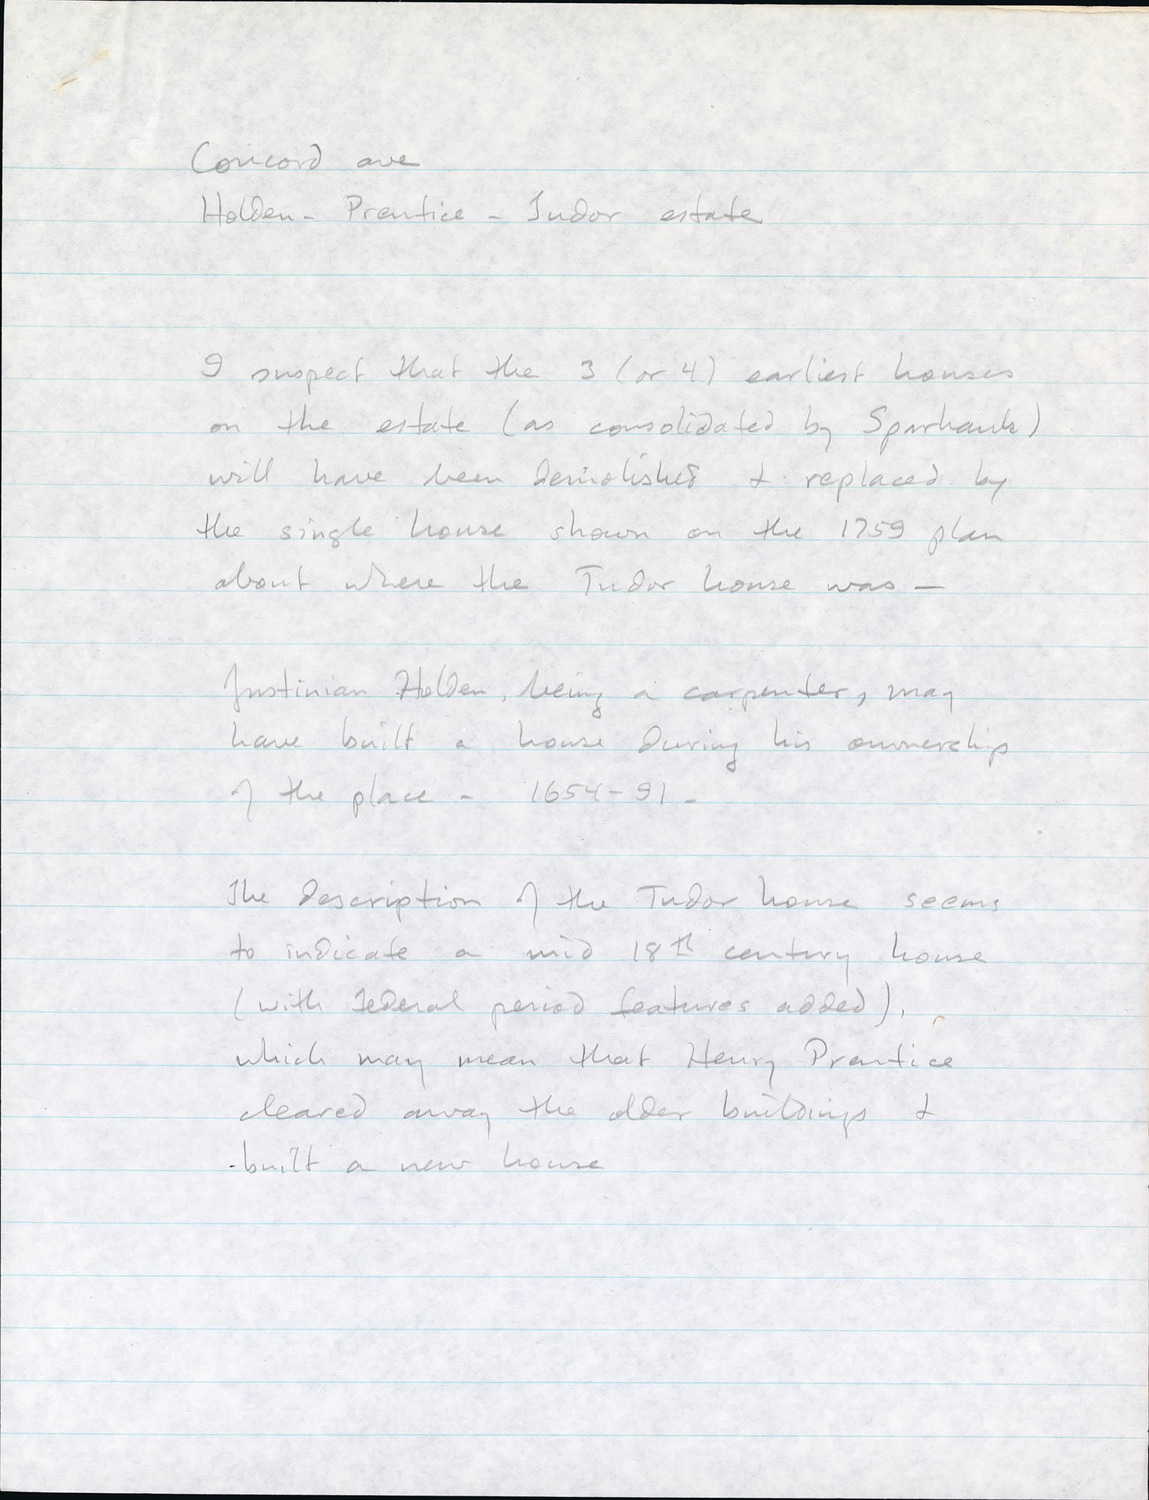 Concord ave
Holden - Prentice - Tudor estate
I suspect that the 3 (or 4) earliest houses
on the estate (as consolidated by Sparhawk)
will have been demolished & replaced by
the single house shown on the 1759 plan
about where the Tudor house was —
Justinian Holden, being a carpenter, may
have built a house during his ownership
of the place - 1654-91 -
The description of the Tudor house seems
to indicate a mid 18th century house
(with federal period features added),
which may mean that Henry Prentice
cleared away the older buildings &
built a new house